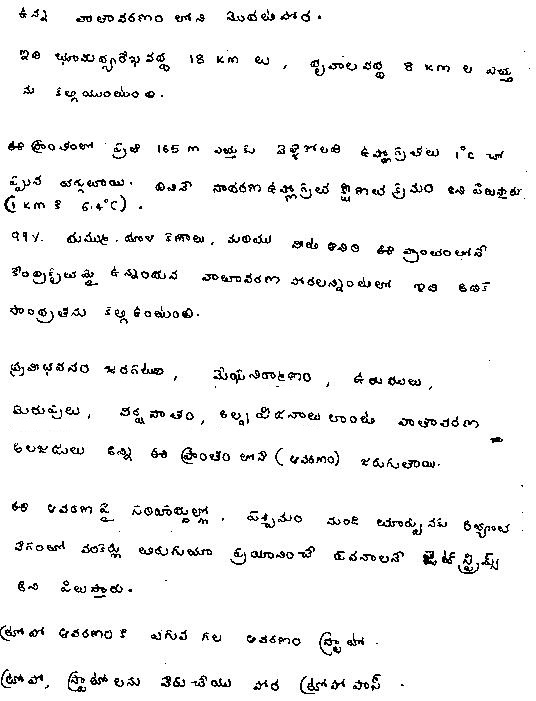 ఉన్న వాతావరణం లోని మొదటి పొర.
ఇది భూమధ్యరేఖవద్ద 18 km లు, ధృవాలవద్ద 8 km ల ఎత్తు
ను కల్గియుంటుంది.
ఈ ప్రాంతంలో ప్రతి 165 m ఎత్తుకు వెళ్ళేకొలది ఉష్ణోగ్రతలు 1°C చొ
ప్పున తగ్గుతాయి. దీనినే సాధారణ ఉష్ణోగ్రత క్షీణతా క్రమం అని పిలుస్తారు
(1 km కి 6.4°C).
99% దుమ్ము, ధూళి కణాలు, మరియు నీటి ఆవిరి ఈ ప్రాంతంలోనే
కేంద్రీకృతమై ఉన్నందున వాతావరణ పొరలన్నింటిలో ఇది అధిక
సాంద్రతను కల్గి ఉంటుంది.
ద్రవీభవనం జరగటం, మేఘనిర్మాణం, ఉరుములు,
మెరుపులు, వర్షపాతం, అల్ప పీడనాలు లాంటి వాతావరణ
అలజడులు అన్ని ఈ ప్రాంతం లోనే (ఆవరణం) జరుగుతాయి.
ఈ ఆవరణ పై సరిహద్దుల్లో, పశ్చిమం నుండి తూర్పునకు అత్యంత
వేగంతో వంకర్లు తిరుగుతూ ప్రయాణించే పవనాలనే జెట్ స్ట్రీమ్స్
అని పిలుస్తారు.
ట్రోపో ఆవరణంకి ఎగువ గల ఆవరణం స్ట్రాటో.
ట్రోపో, స్ట్రాటోలను వేరుచేయు పొర ట్రోపోపాస్.